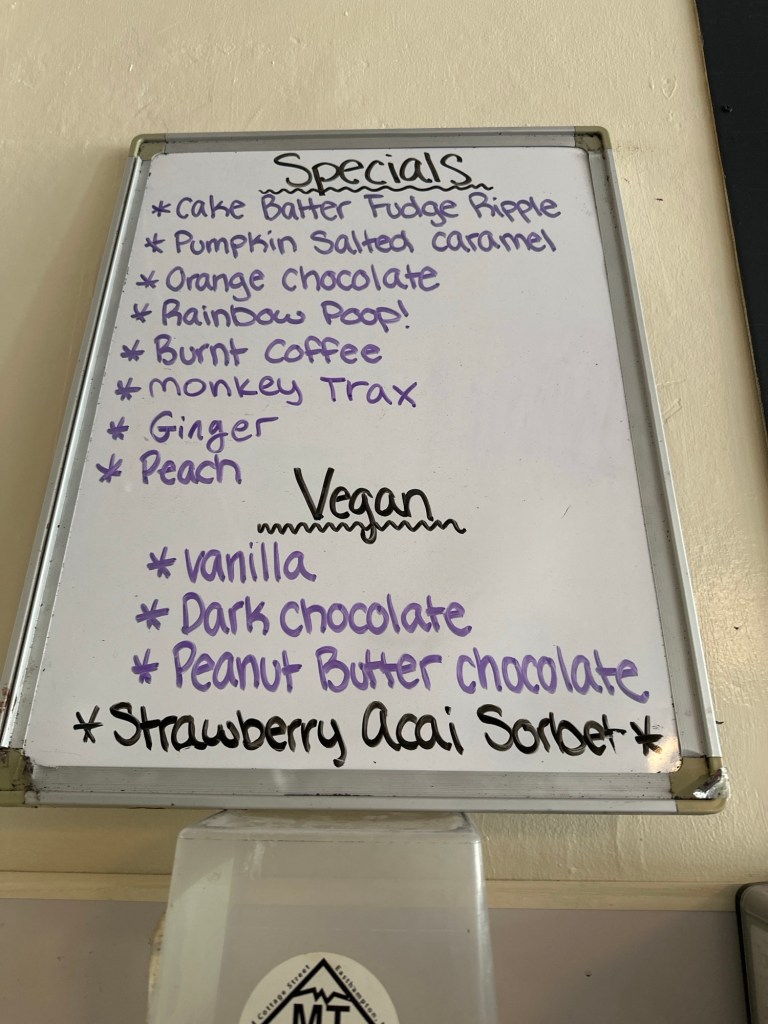 Specials
* Cake Batter Fudge Ripple
* Pumpkin Salted Caramel
* Orange Chocolate
* Rainbow Poop!
* Burnt Coffee
* Monkey Trax
* Ginger
* Peach
Vegan
* Vanilla
* Dark Chocolate
* Peanut Butter Chocolate
* Strawberry Acai Sorbet *
Cottage Street
Easthampton,
MT